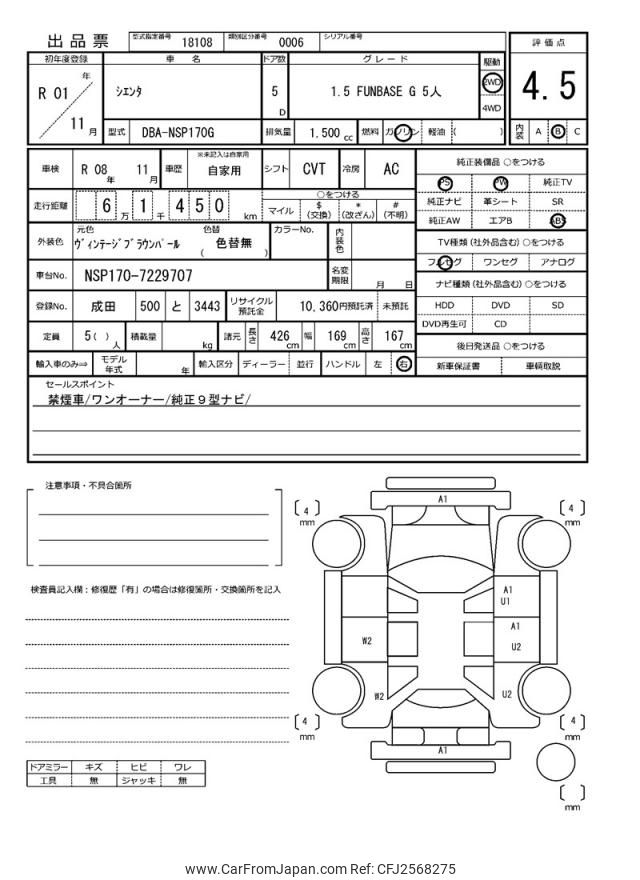 出品票
型式指定番号 18108 類別区分番号 0006 シリアル番号
初年度登録 車名 ドア数 グレード 駆動 評価点
R 01 年 11 月
シエンタ 5 D 1.5 FUNBASE G 5人 2WD 4WD
4.5
型式 DBA-NSP170G 排気量 1,500 cc 燃料 ガソリン 軽油 ( ) 内装 A B C
車検 R 08 年 11 月 車歴 ※未記入は自家用 自家用 シフト CVT 冷房 AC
純正装備品 ○をつける
PS PW 純正TV
純正ナビ 革シート SR
純正AW エアB ABS
走行距離 6 万 1 千 4 5 0 km
○をつける
マイル $(交換) *(改ざん) #(不明)
外装色 元色 ヴィンテージブラウンパール 色替 ( 色替無 ) カラーNo. 内装色
TV種類(社外品含む) ○をつける
フルセグ ワンセグ アナログ
車台No. NSP170-7229707 名変期限 月 日
ナビ種類(社外品含む) ○をつける
HDD DVD SD
DVD再生可 CD
登録No. 成田 500 と 3443 リサイクル預託金 10,360円預託済 未預託
定員 5( ) 人 積載量 kg 諸元 長さ 426 cm 幅 169 cm 高さ 167 cm
後日発送品 ○をつける
新車保証書 車輌取説
輸入車のみ⇒ モデル年式 年 輸入区分 ディーラー 並行 ハンドル 左 右
セールスポイント
禁煙車/ワンオーナー/純正9型ナビ/
注意事項・不具合箇所
検査員記入欄:修復歴「有」の場合は修復箇所・交換箇所を記入
A1
〔 4 〕 mm
〔 4 〕 mm
A1
U1
A1
W2 U2
W2 U2
〔 4 〕 mm
〔 4 〕 mm
A1
〔 〕 mm
ドアミラー キズ ヒビ ワレ
工具 無 ジャッキ 無
www.CarFromJapan.com Ref: CFJ2568275